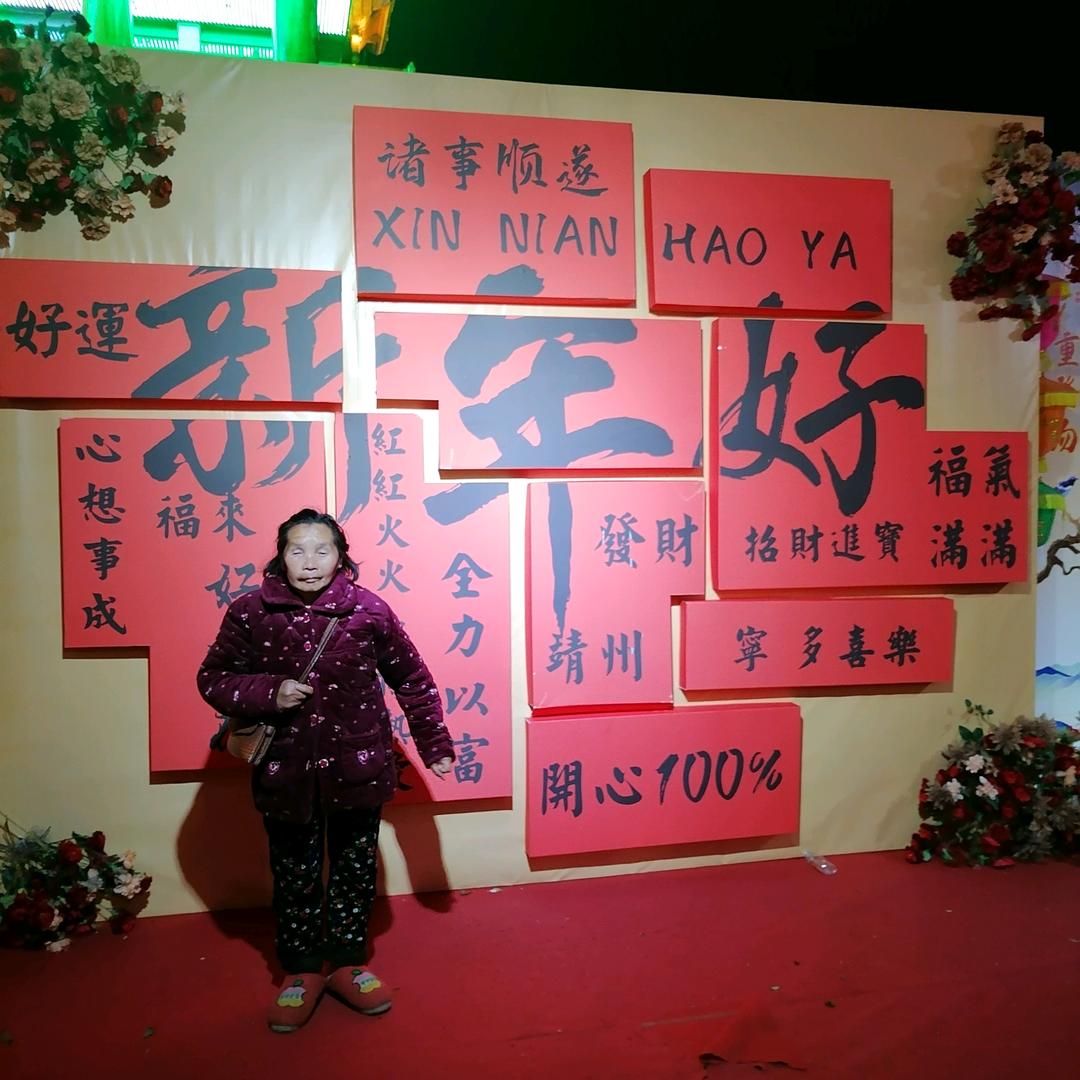 诸事顺遂
XIN NIAN
HAO YA
好運
新年好
心想事成
福來
好
紅紅火火
全力以富
發財
靖州
招財進寶
福氣
滿滿
寧多喜樂
開心100%